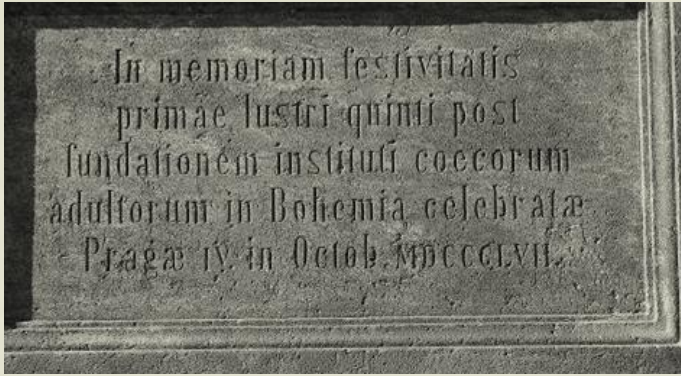 In memoriam festivitatis
primae lustri quinti post
fundationem instituti coecorum
adultorum in Bohemia celebratæ
Pragæ IV. in Octob. MDCCCLVII.